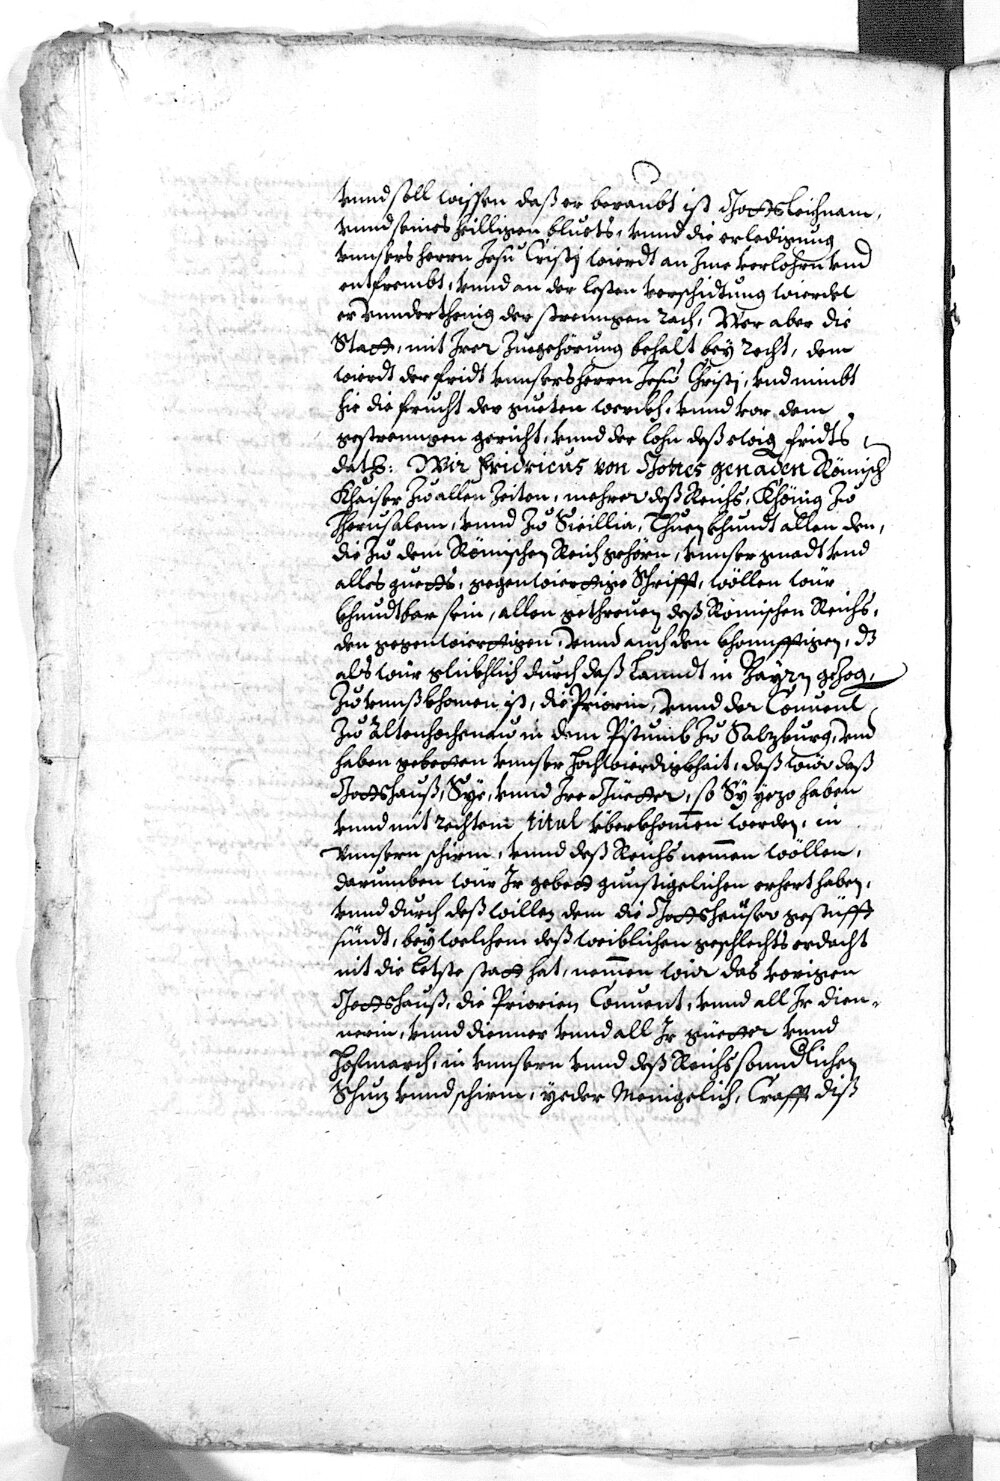 vnnd soll wissen daß er beraubt ist Gottsleichnam,
vnnd seines heilligen bluets, vnnd die erledigung
vnnsers herrn Jesu Cristj wierdt an Jme verlohrn vnd
entfrembt, vnnd an der lesten verschidtung wierdet
er vnnderthenig der strenngen Rach, Wer aber die
Statt, mit Jrer Zuegehörung behalt bey Recht, dem
wierdt der fridt vnnsers herrn Jesu Christj, vnd nimbt
hie die frucht der gueten werckh, vnnd vor dem
gestrenngen gericht, vnnd der lohn deß ewig fridts
datß: Wir Fridricus von Gottes genaden Römisch
Khaiser Zu allen Zeiten, mehrer deß Reichs, Khönig Zu
Jherusalem, vnnd Zu Sicillia, Thuen khundt allen den,
die Zu dem Römischen Reich gehörn, vnnser gnadt vnd
alles guetts, gegenwierttige Schrifft, wöllen wür
khundtbar sein, allen gethreuen deß Römischen Reichs,
den gegenwierttigen, vnnd auch den khonnfftigen, dz
als wür glückhlich durch daß Lanndt in Bayrn gezog,
Zu vnnß khomen ist, die Priorin, vnnd der Conuent
Zu Altenhochenau in dem Pistumb Zu Salzburg, vnd
haben gebetten vnnser hochwierdigkhait, daß wür daß
Gottshauß, Sye, vnnd Jre Güetter, so Sy yezo haben
vnnd mit rechtem titul überkhomen werden, in
vnnsern schirm, vnnd deß Reichs nemen wöllen,
darumben wür Jr gebett gunstigelichen erhert haben,
vnnd durch deß willen dem die Gottsheüser gestüfft
sündt, bey welchem deß weiblichen geschlechts erdacht
nit die letste statt hat, nemen wir das vorigen
Gottshauß, die Priorin Conuent, vnnd all Jr dien-
nerin, vnnd dienner vnnd all Jr güetter vnnd
Hofmarch, in vnnsern vnnd deß Reichs sonndlichen
Schuz vnnd schirm, yeder Menigelich, Crafft diß